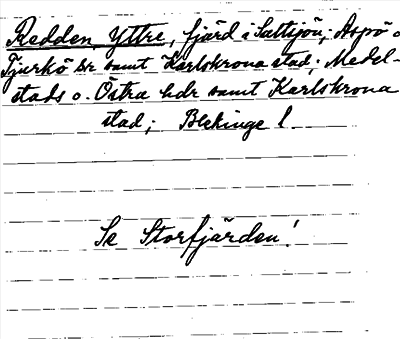 Redden, Yttre, fjärd i Saltsjön; Aspö o
Tjurkö sr samt Karlskrona stad; Medel-
stads o. Östra hdr samt Karlskrona
stad; Blekinge l.
Se Storfjärden!